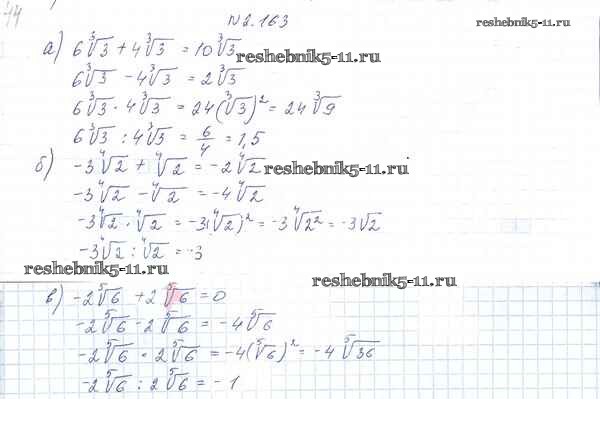 44
N 2.163
reshebnik5-11.ru
а) 6∛3 + 4∛3 = 10∛3
reshebnik5-11.ru
6∛3 - 4∛3 = 2∛3
6∛3 · 4∛3 = 24(∛3)² = 24∛9
6∛3 : 4∛3 = 6/4 = 1,5
б) -3∜2 + ∜2 = -2∜2
reshebnik5-11.ru
-3∜2 - ∜2 = -4∜2
-3∜2 · ∜2 = -3(∜2)² = -3∜2² = -3√2
-3∜2 : ∜2 = -3
reshebnik5-11.ru
reshebnik5-11.ru
в) -2⁵√6 + 2⁵√6 = 0
-2⁵√6 - 2⁵√6 = -4⁵√6
-2⁵√6 · 2⁵√6 = -4(⁵√6)² = -4⁵√36
-2⁵√6 : 2⁵√6 = -1